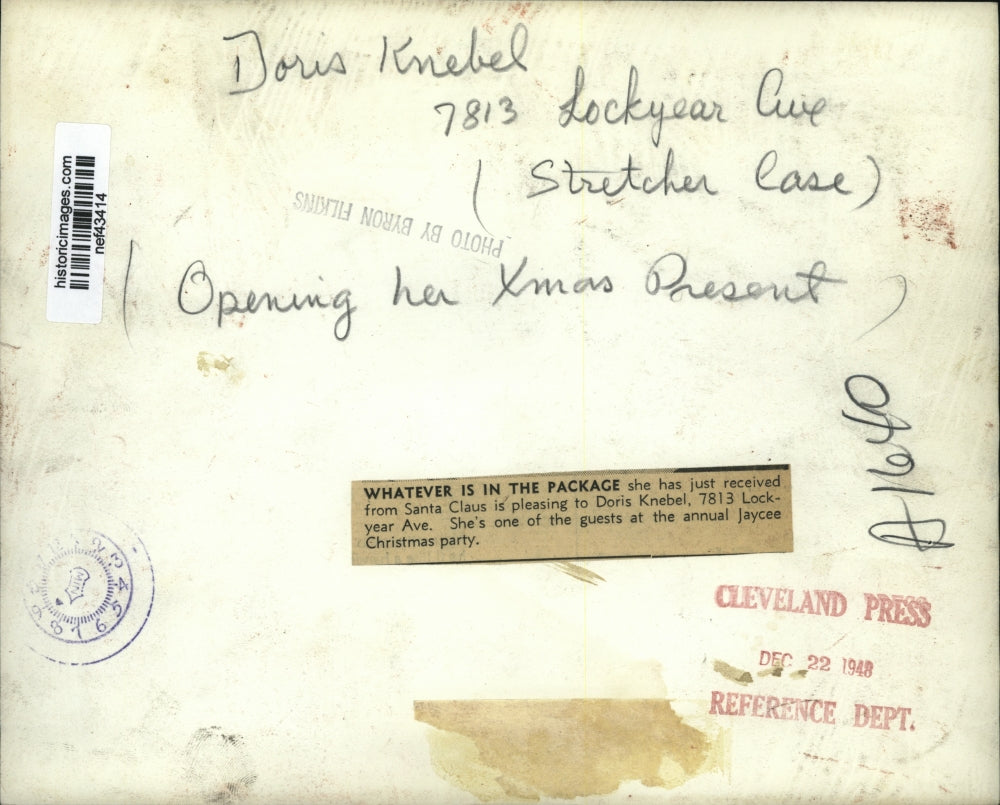 Doris Knebel
7813 Lockyear Ave
(Stretcher Case)
PHOTO BY BYRON FILKINS
(Opening her Xmas Present)
historicimages.com
nef43414
A-1640
WHATEVER IS IN THE PACKAGE she has just received
from Santa Claus is pleasing to Doris Knebel, 7813 Lock-
year Ave. She's one of the guests at the annual Jaycee
Christmas party.
CLEVELAND PRESS
DEC 22 1948
REFERENCE DEPT.